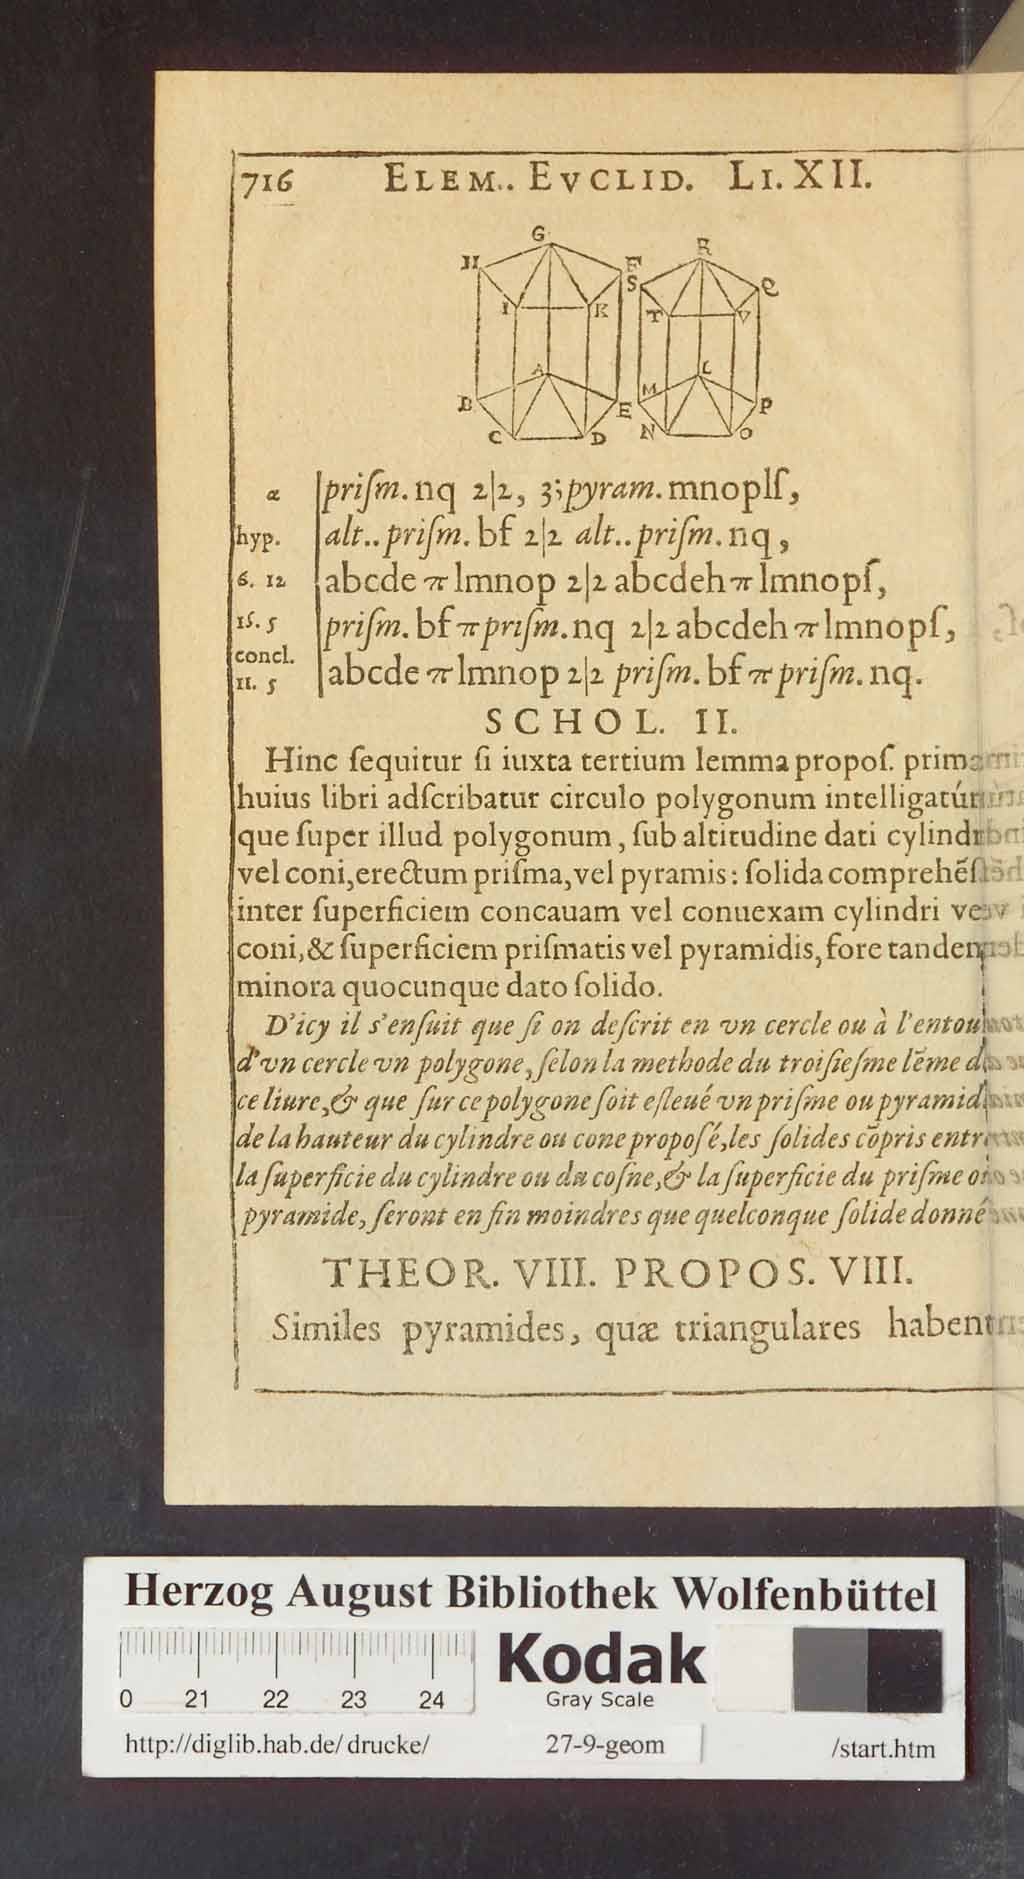 716 ELEM.. EVCLID. LI. XII.
G
R
H
F
S
Q
I
K
T
V
A
L
M
B
E
P
C
D
N
O
æ priſm. nq 2|2, 3; pyram. mnoplſ,
hyp. alt.. priſm. bf 2|2 alt.. priſm. nq,
6. 12 abcde π lmnop 2|2 abcdeh π lmnopſ,
15. 5 priſm. bf π priſm. nq 2|2 abcdeh π lmnopſ,
concl.
11. 5 abcde π lmnop 2|2 priſm. bf π priſm. nq.
SCHOL. II.
Hinc ſequitur ſi iuxta tertium lemma propoſ.
huius libri adſcribatur circulo polygonum
que ſuper illud polygonum, ſub altitudine dati
vel coni, erectum priſma, vel pyramis: ſolida
inter ſuperficiem concauam vel conuexam cylindri
coni, & ſuperficiem priſmatis vel pyramidis, fore
minora quocunque dato ſolido.
D'icy il s'enſuit que ſi on deſcrit en vn cercle ou à
d'vn cercle vn polygone, ſelon la methode du troiſieſme lēme
ce liure, & que ſur ce polygone ſoit eſleué vn priſme ou
de la hauteur du cylindre ou cone propoſé, les ſolides cōpris
la ſuperficie du cylindre ou du coſne, & la ſuperficie du priſme
pyramide, ſeront en fin moindres que quelconque ſolide donné
THEOR. VIII. PROPOS. VIII.
Similes pyramides, quæ triangulares habent
Herzog August Bibliothek Wolfenbüttel
0 21 22 23 24
Kodak
Gray Scale
http://diglib.hab.de/drucke/ 27-9-geom /start.htm